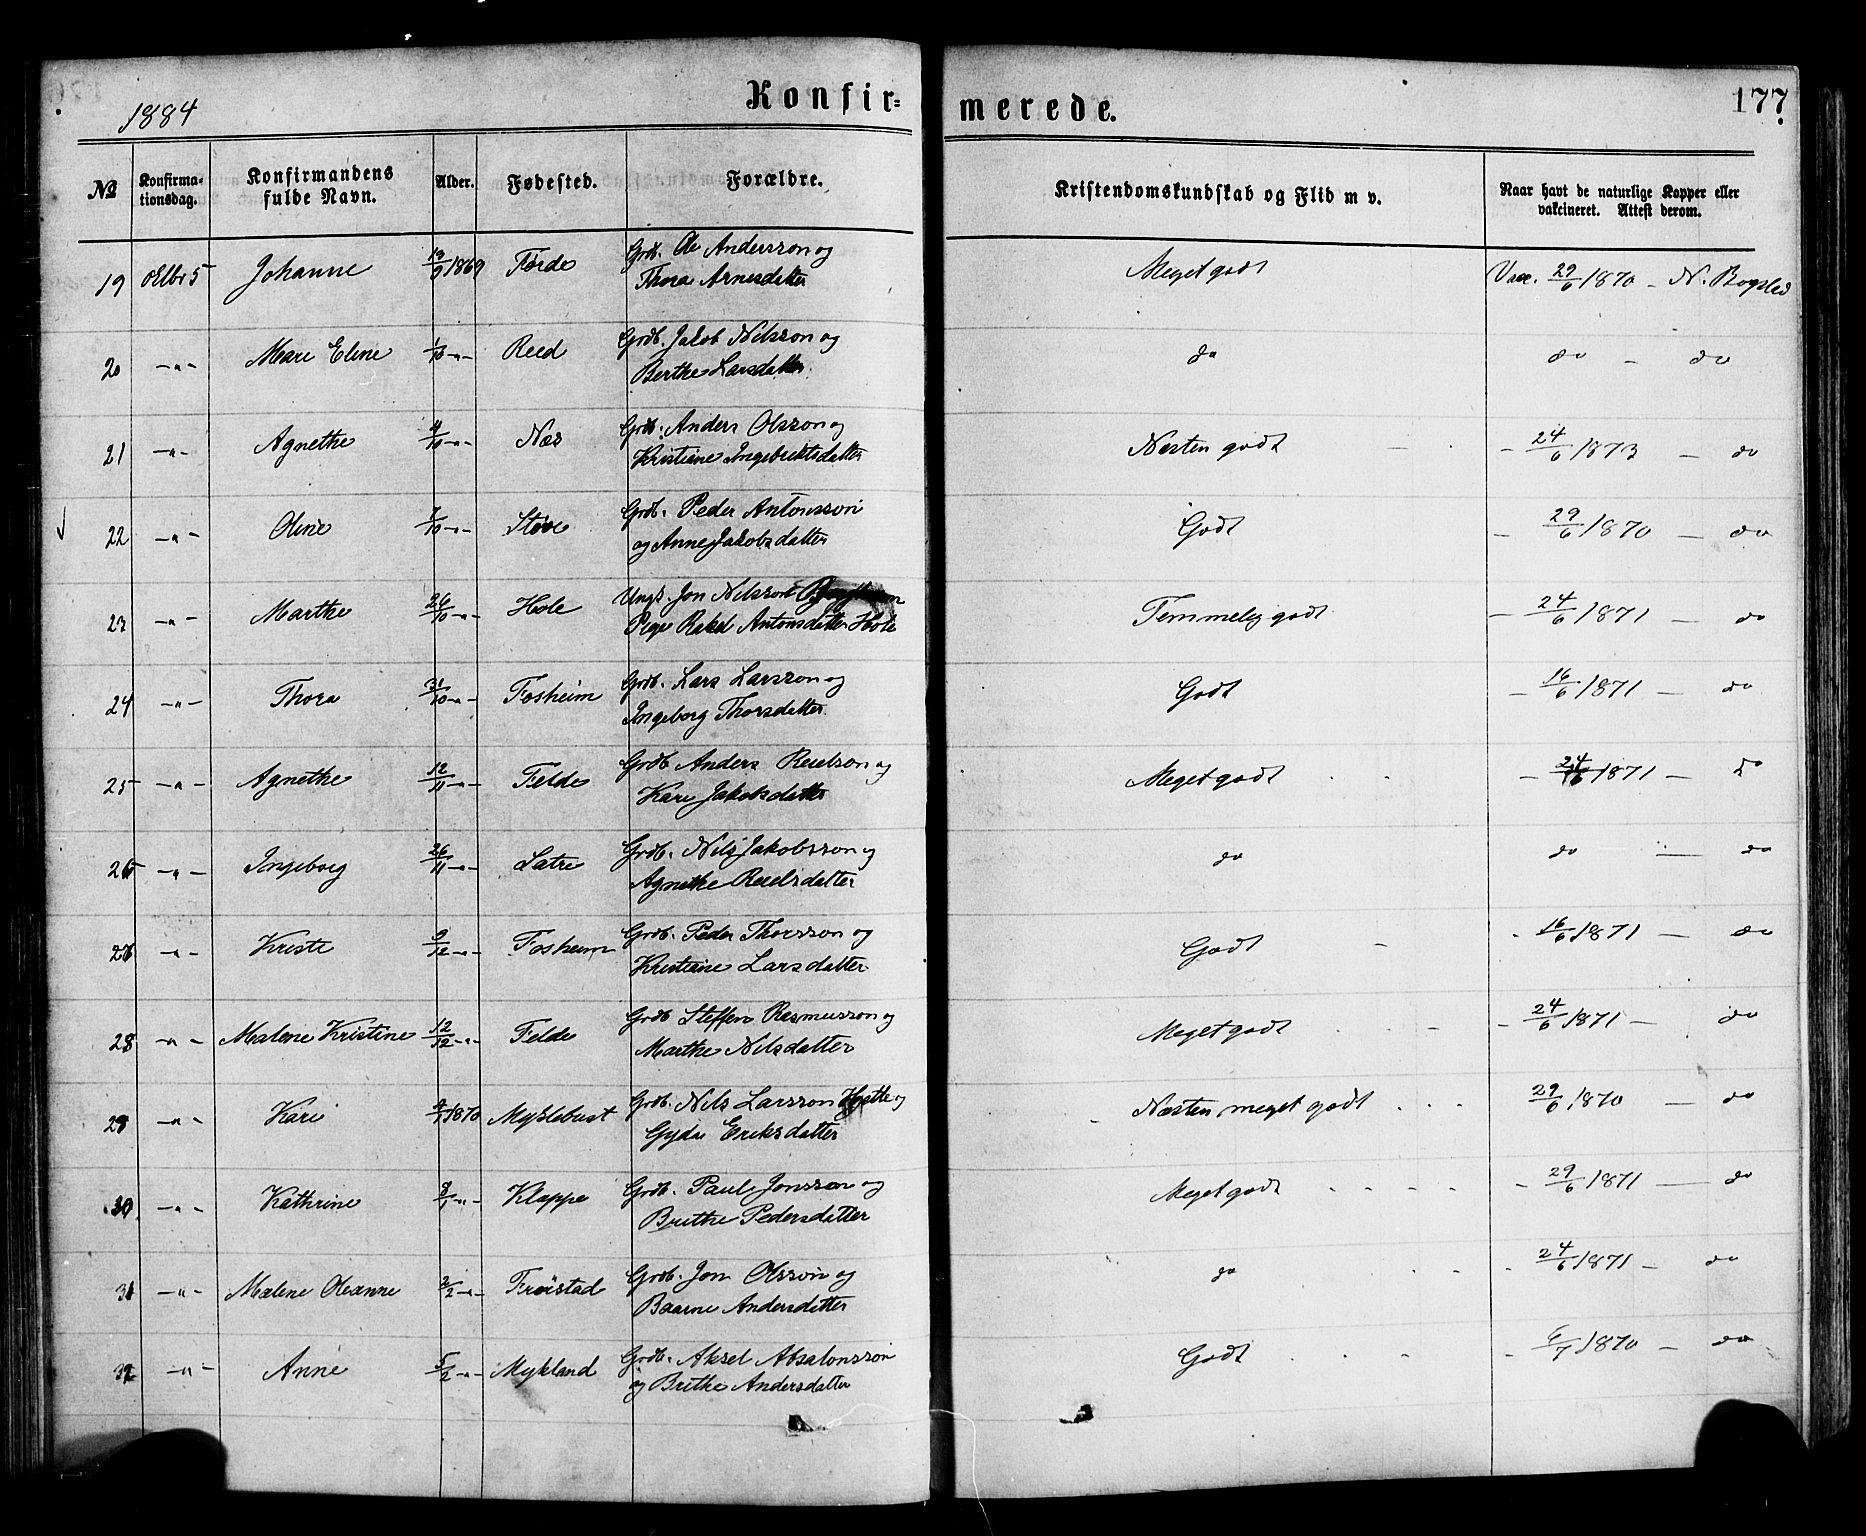 1884
Konfir=
merede.
177.
No
Konfirma-
tionsdag.
Konfirmandens
fulde Navn.
Alder.
Fødested.
Forældre.
Kristendomskundskab og Flid m v.
Naar havt de naturlige Kopper eller
vakcineret. Attest derom.
19 Johanne 1869 Førde Grdb. Ole Andersson og Meget godt Vac. 29/6 1870 – N. Bogstad
Thora Arnesdatter
20 –"– Mari Eline 1/10 –"– Reed Grdb. Jakob Nilsson og do do – do
Berthe Larsdatter
21 –"– Agnethe 4/10 –"– Nes Grdb. Anders Olsson og Næsten godt – 24/6 1873 – do
Kristiane Ingebriktsdatter
22 –"– Oline 7/10 –"– Støve Grdb. Peder Antonsson Godt – 29/6 1870 – do
og Anne Jakobsdatter
23 –"– Marthe 26/10 –"– Hole Ungk. Jon Nilsson Temmelig godt – 24/6 1871 – do
Pige Rakel Antonsdatter Hole
24 –"– Thora 31/10 –"– Fosheim Grdb. Lars Larsson og Godt – 16/6 1871 – do
Ingeborg Thorsdatter
25 –"– Agnethe 12/11 –"– Felde Grdb. Anders Reielson og Meget godt – 24/6 1871 – do
Kari Jakobsdatter
26 –"– Ingeborg 26/11 –"– Satre Grdb. Nils Jakobsson og do do – do
Agnethe Reielsdatter
27 –"– Kristi 9/12 –"– Fosheim Grdb. Peder Thorsson og Godt – 16/6 1871 – do
Kristiane Larsdatter
28 –"– Malene Kristine 12/12 –"– Felde Grdb. Steffen Rasmusson og Meget godt – 24/6 1871 – do
Marthe Nilsdatter
29 –"– Kari 1870 Myklebust Grdb. Nils Larsson og Næsten meget godt 29/6 1870 – do
Gyda Eriksdatter
30 –"– Kathrine 8/1 –"– Klappe Grdb. Paul Jonsson og Meget godt – 29/6 1871 – do
Brithe Pedersdatter
31 –"– Malene Oleanne 2/2 –"– Frøistad Grdb. Jon Olsson og do – 24/6 1871 – do
Baarne Andersdatter
32 –"– Anne 5/2 –"– Mykland Grdb. Aksel Absalonsson Godt – 6/7 1870 – do
og Brithe Andersdatter